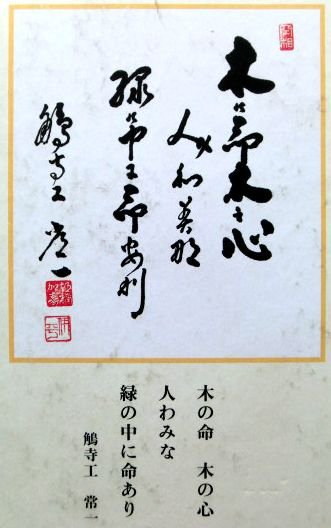 木の命木之心
人和美那
緑の中二命安利
鵤寺工 常一
木の命 木の心
人わみな
緑の中に命あり
鵤寺工 常一